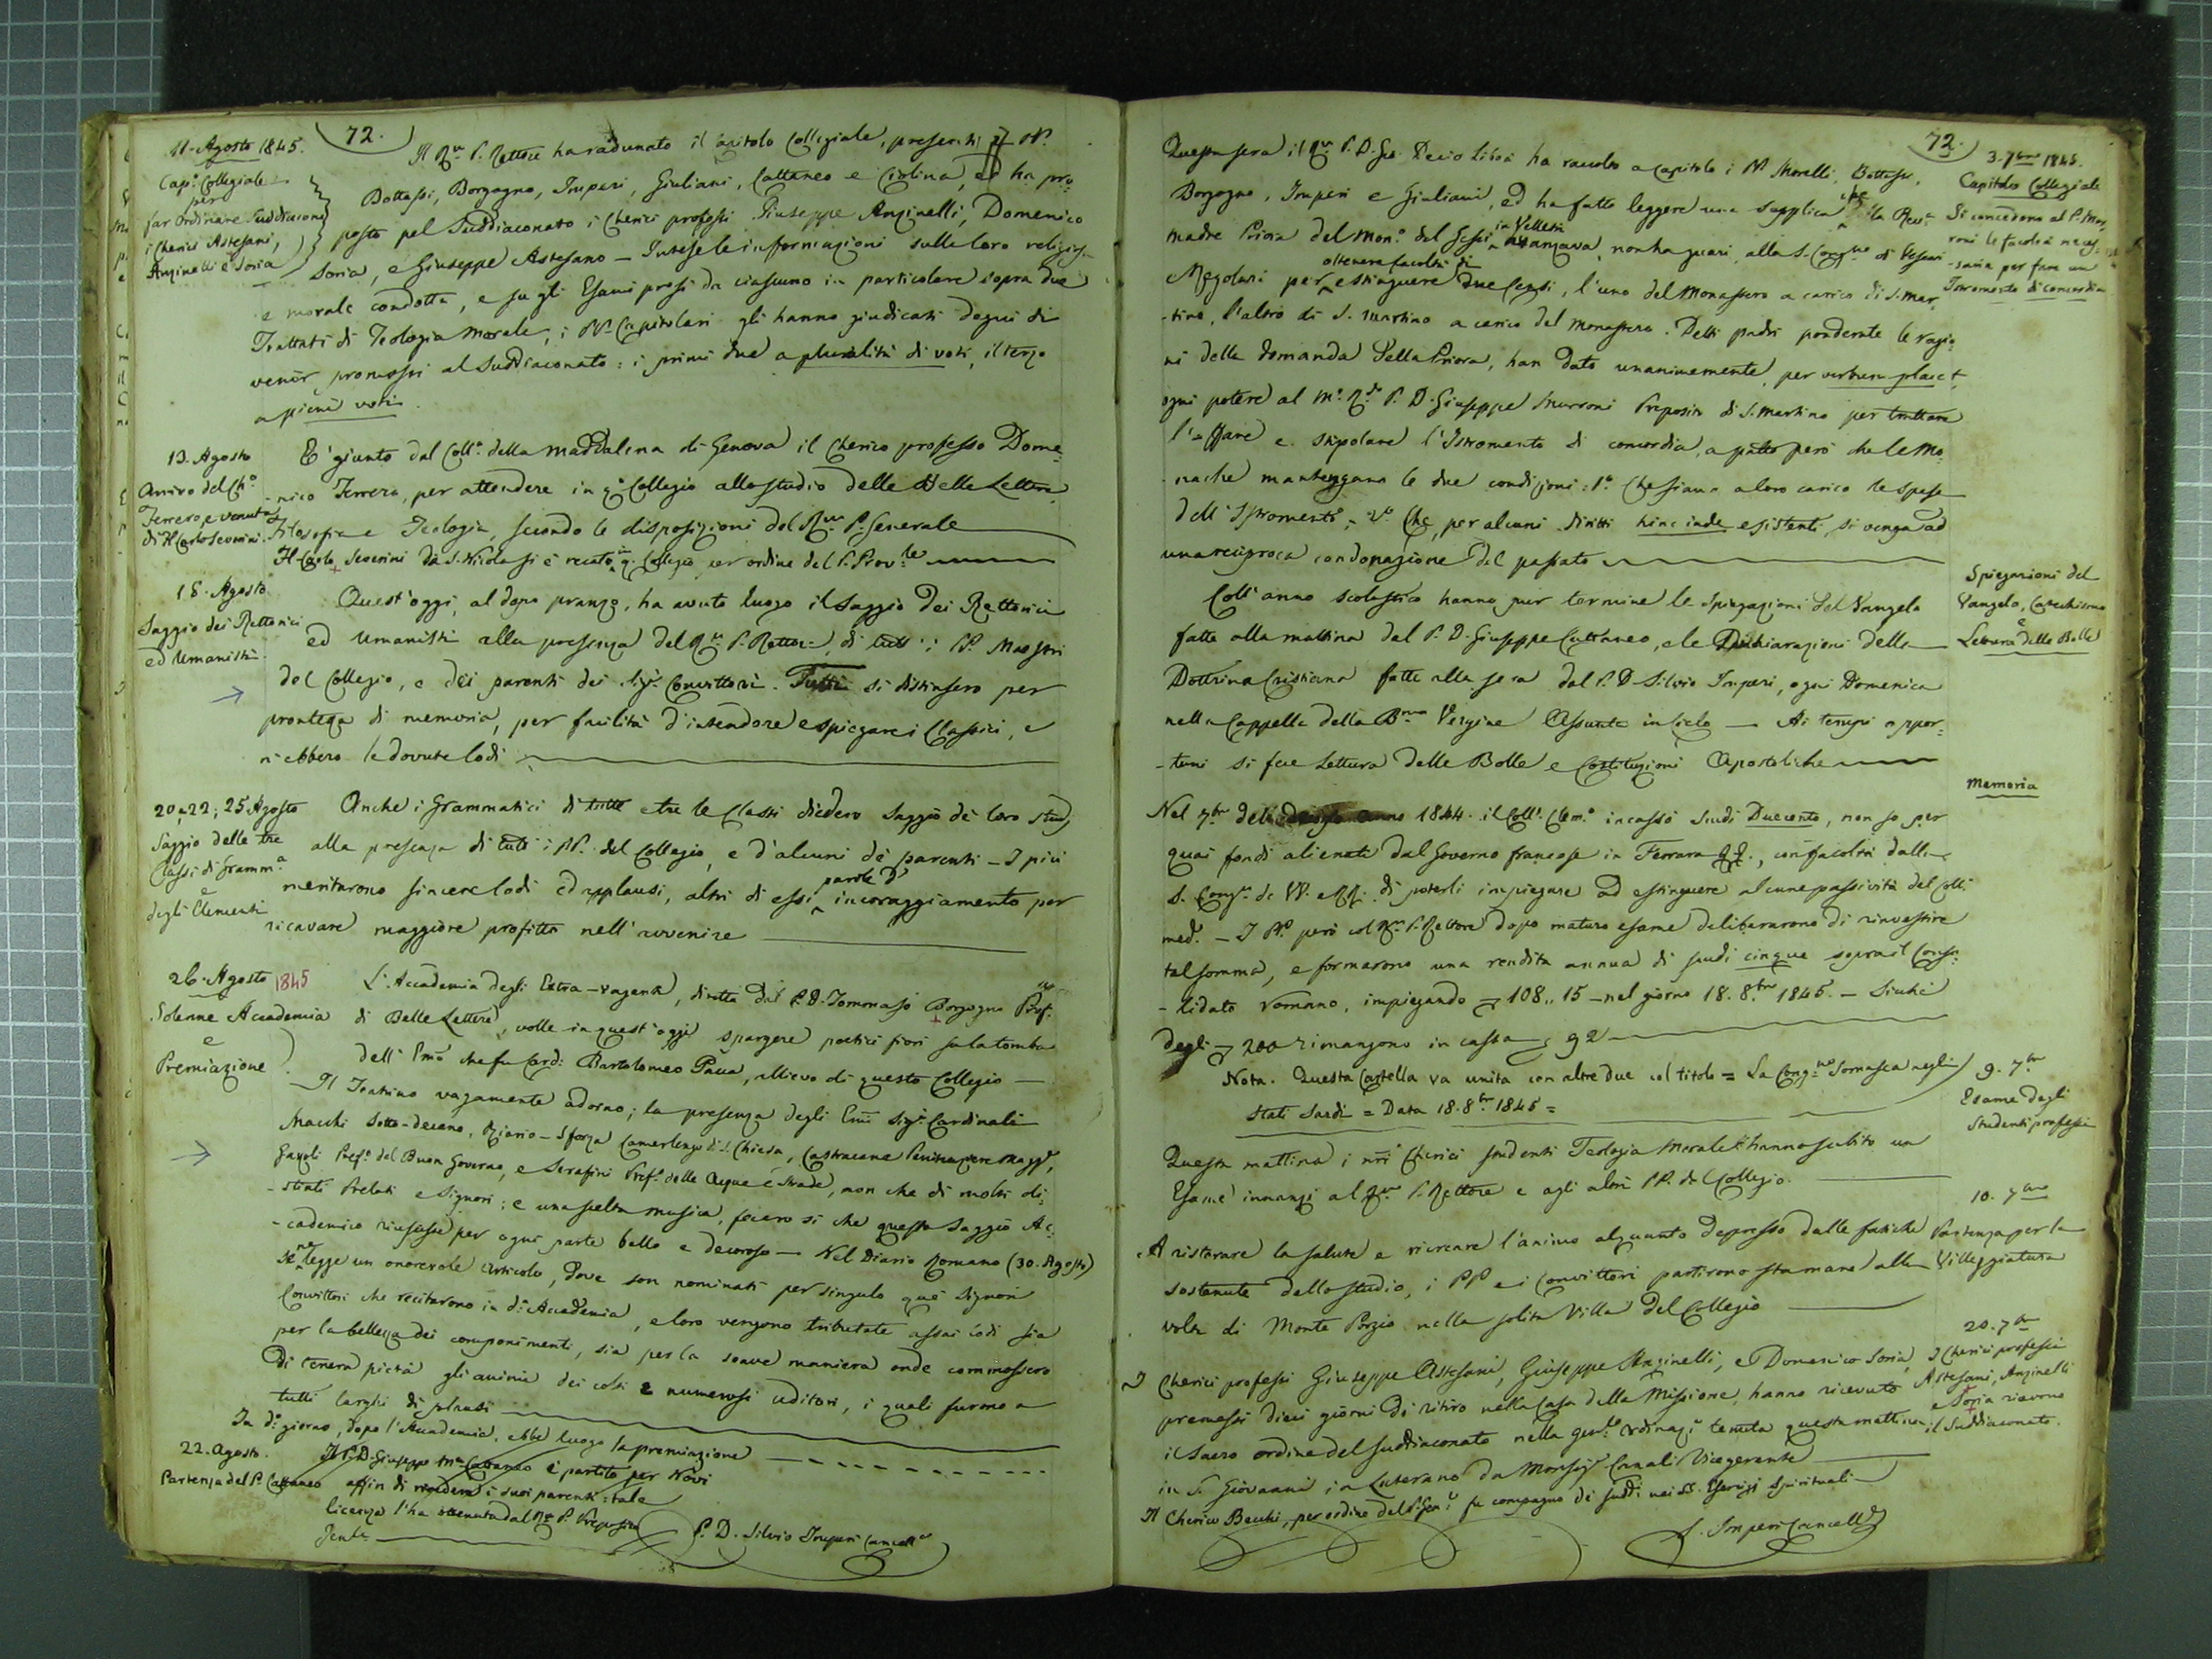 72.
11. Agosto 1845.
Cap.° Collegiale
per
far ordinare Suddiaconi
i Cherici Astesani,
Anzinelli e Soria
Il R.mo P. Rettore ha radunato il Capitolo Collegiale, presenti i PP.
Bottassi, Borgogno, Imperi, Giuliani, Cattaneo e Ciolina, ed ha pro-
posto pel Suddiaconato i Cherici professi Giuseppe Anzinelli, Domenico
Soria, e Giuseppe Astesano — Intese le informazioni sulla loro religiosa
e morale condotta, e su gli Esami presi da ciascuno in particolare sopra due
Trattati di Teologia Morale, i PP. Capitolari gli hanno giudicati degni di
venir promossi al Suddiaconato: i primi due a pluralità di voti, il terzo
a pieni voti.
13. Agosto
Arrivo del Ch.°
Ferrero, e venuta
di H. Carlo Severini.
E' giunto dal Coll.° della Maddalena di Genova il Cherico professo Dome-
nico Ferrero, per attendere in q.° Collegio allo studio delle Belle Lettere
Filosofia e Teologia, secondo le disposizioni del R.mo P. Generale
H. Carlo Severini da S. Nicola si è recato in q. Collegio per ordine del P. Prov.le
18. Agosto
Saggio dei Rettorici
ed Umanisti.
Quest'oggi, al dopo pranzo, ha avuto luogo il Saggio dei Rettorici
ed Umanisti alla presenza del R.mo P. Rettore, di tutti i PP. Maestri
del Collegio, e dei parenti dei Sig.ri Convittori. Tutti si distinsero per
prontezza di memoria, per facilità d'intendere e spiegare i Classici, e
n'ebbero le dovute lodi
20, 22, 25 Agosto
Saggio delle tre
Classi di Gramm.a
e
degli Elementi
Anche i Grammatici di tutte e tre le Classi diedero Saggio de' loro studj
alla presenza di tutti i PP. del Collegio, e d'alcuni de' parenti — I più
meritarono sincere lodi ed applausi, altri di essi parole d' incoraggiamento per
ricavare maggiore profitto nell'avvenire
26. Agosto 1845
Solenne Accademia
e
Premiazione
L'Accademia degli Extra-vaganti, diretta dal P. D. Tommaso Borgogno Prof.re
di Belle Lettere, volle in quest'oggi spargere poetici fiori sulla tomba
dell'Emo che fu Card. Bartolomeo Pacca, allievo di questo Collegio —
Il Teatrino vagamente adorno; la presenza degli Emi Sig.ri Cardinali
Macchi Sotto-decano, Riario-Sforza Camerlengo di S. Chiesa, Castracane Penitenziere Magg.re,
Gazoli Pref.° del Buon Governo, e Serafini Pref.° delle Acque e Strade, non che di molti di-
stinti Prelati e Signori; e una scelta musica, fecero sì che questo Saggio Ac-
cademico riuscisse per ogni parte bello e decoroso — Nel Diario Romano (30. Agosto)
se ne legge un onorevole articolo, dove son nominati per singulo que' Signori
Convittori che recitarono in d.a Accademia, e loro vengono tributate assai lodi sia
per la bellezza dei componimenti, sia per la soave maniera onde commossero
di tenera pietà gli animi dei colti e numerosi uditori, i quali furono a
tutti larghi di plausi
In d.° giorno, dopo l'Accademia, ebbe luogo la premiazione
22. Agosto.
Partenza del P. Cattaneo
Il P. D. Giuseppe M.a Cattaneo è partito per Novi
affin di rivedere i suoi parenti: tale
licenza l'ha ottenuta dal R.mo P. Preposito
Gen.le
P. D. Silvio Imperi Cancell.e
72.
3. 7bre 1845.
Capitolo Collegiale
Si concedono al P. Mar-
roni le facoltà neces-
sarie per fare un
Istromento di concordia
Questa sera il R.mo P. D. Gio. Decio Libois ha raccolto a Capitolo i PP. Morelli, Bottassi,
Borgogno, Imperi e Giuliani, ed ha fatto leggere una supplica che la Rev.a
Madre Priora del Mon.° del Gesù in Velletri avanzava, non ha guari, alla S. Cong.ne di Vescovi
Regolari per ottenere facoltà di estinguere due Censi, l'uno del Monastero a carico di S. Mar-
tino, l'altro di S. Martino a carico del Monastero. Detti padri ponderate le ragio-
ni della domanda della Priora, han dato unanimemente, per verbum placet
ogni potere al M.° R.do P. D. Giuseppe Marroni Preposito di S. Martino per trattare
l'affare e stipolare l'Istromento di concordia, a patto però che le Mo-
nache mantengano le due condizioni: 1.° Che siano a loro carico le spese
dell'Istromento; 2.° Che, per alcuni diritti hinc inde esistenti, si venga ad
una reciproca condonazione del passato
Spiegazioni del
Vangelo, Catechismo
e
Lettura delle Bolle
Coll'anno scolastico hanno pur termine le spiegazioni del Vangelo
fatte alla mattina dal P. D. Giuseppe Cattaneo, e le Dichiarazioni della
Dottrina Cristiana fatte alla sera dal P. D. Silvio Imperi, ogni Domenica
nella Cappella della B.ma Vergine Assunta in Cielo — Ai tempi oppor-
tuni si fece Lettura delle Bolle e Costituzioni Apostoliche
Memoria
Nel 7bre dell' anno 1844. il Coll.° Clem.° incassò scudi Duecento, non so per
quai fondi alienati dal Governo francese in Ferrara, con facoltà dalla
S. Cong.ne de VV. e RR. di poterli impiegare ad estinguere alcune passività del Coll.°
med.° — I PP. però col R.mo P. Rettore dopo maturo esame deliberarono di rinvestire
tal somma, e formarono una rendita annua di scudi cinque sopra il Conso-
lidato romano, impiegando 108.. 15 — nel giorno 18. 8bre 1845. — Sicchè
degli 200 rimangono in cassa 92
Nota. Questa Cartella va unita con altre due col titolo = La Cong.ne Somasca negli
Stati Sardi = Data 18. 8bre 1845 =
9. 7bre
Esame degli
Studenti professi
Questa mattina i nri Cherici studenti Teologia Morale hanno subito un
Esame innanzi al R.mo P. Rettore e agli altri PP. del Collegio.
10. 7bre
Partenza per la
Villeggiatura
A ristorare la salute e ricreare l'animo alquanto depresso dalle fatiche
sostenute dello studio, i PP. e i Convittori partirono stamane alla
volta di Monte Porzio nella solita Villa del Collegio
20. 7bre
I Cherici professi
Astesani, Anzinelli
e Soria ricevono
il Suddiaconato.
I Cherici professi Giuseppe Astesani, Giuseppe Anzinelli, e Domenico Soria,
premessi dieci giorni di ritiro nella Casa della Missione, hanno ricevuto
il Sacro ordine del Suddiaconato nella gen.le ordinaz.e tenuta questa mattina
in S. Giovanni in Laterano da Monsig.r Canali Vicegerente
Il Cherico Becchi, per ordine del P. Gen.le fu compagno de' suddi nei SS. Esercizi Spirituali
S. Imperi Cancell.e